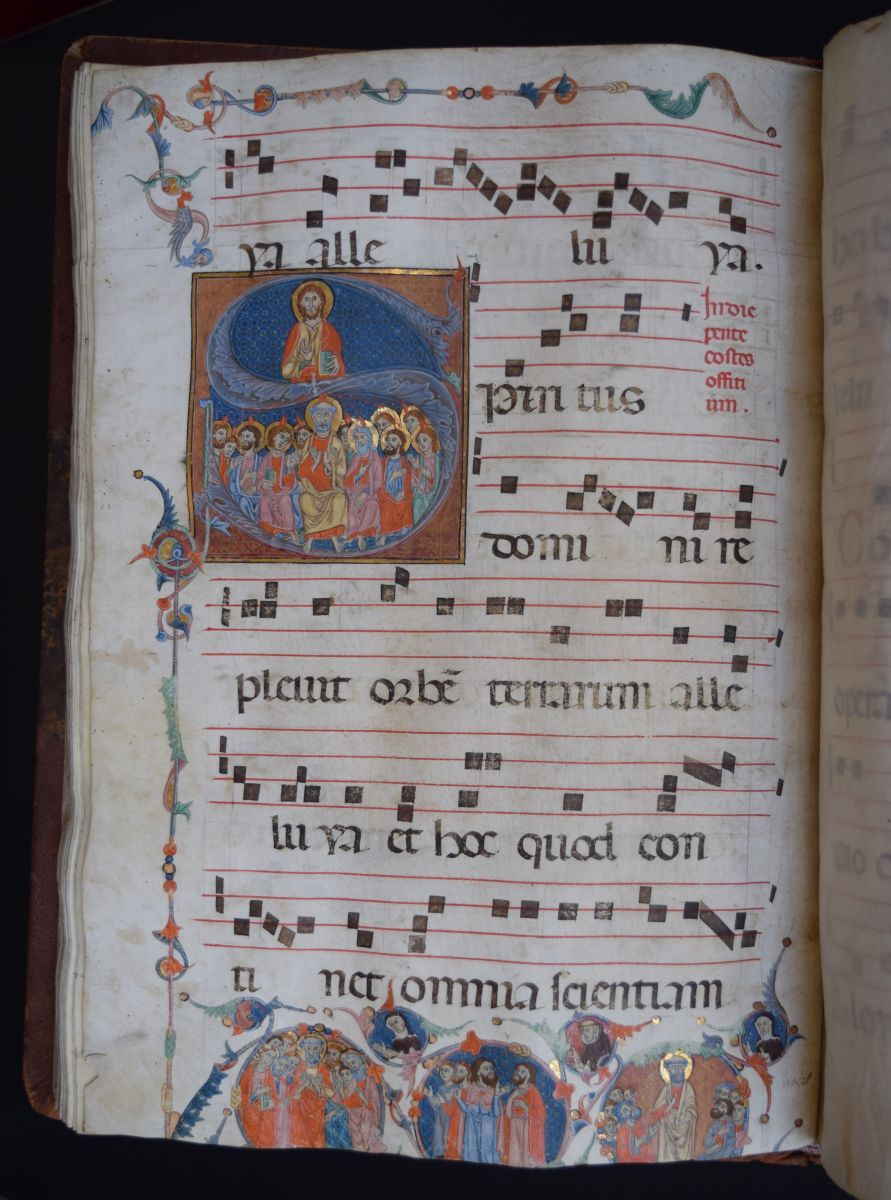 ya alle lu ya.
In die
pente
costes
offiti
um.
Spiri tus
domi ni re
pleuit orbē terrarum alle
lu ya et hoc quod con
ti net omnia scientiam